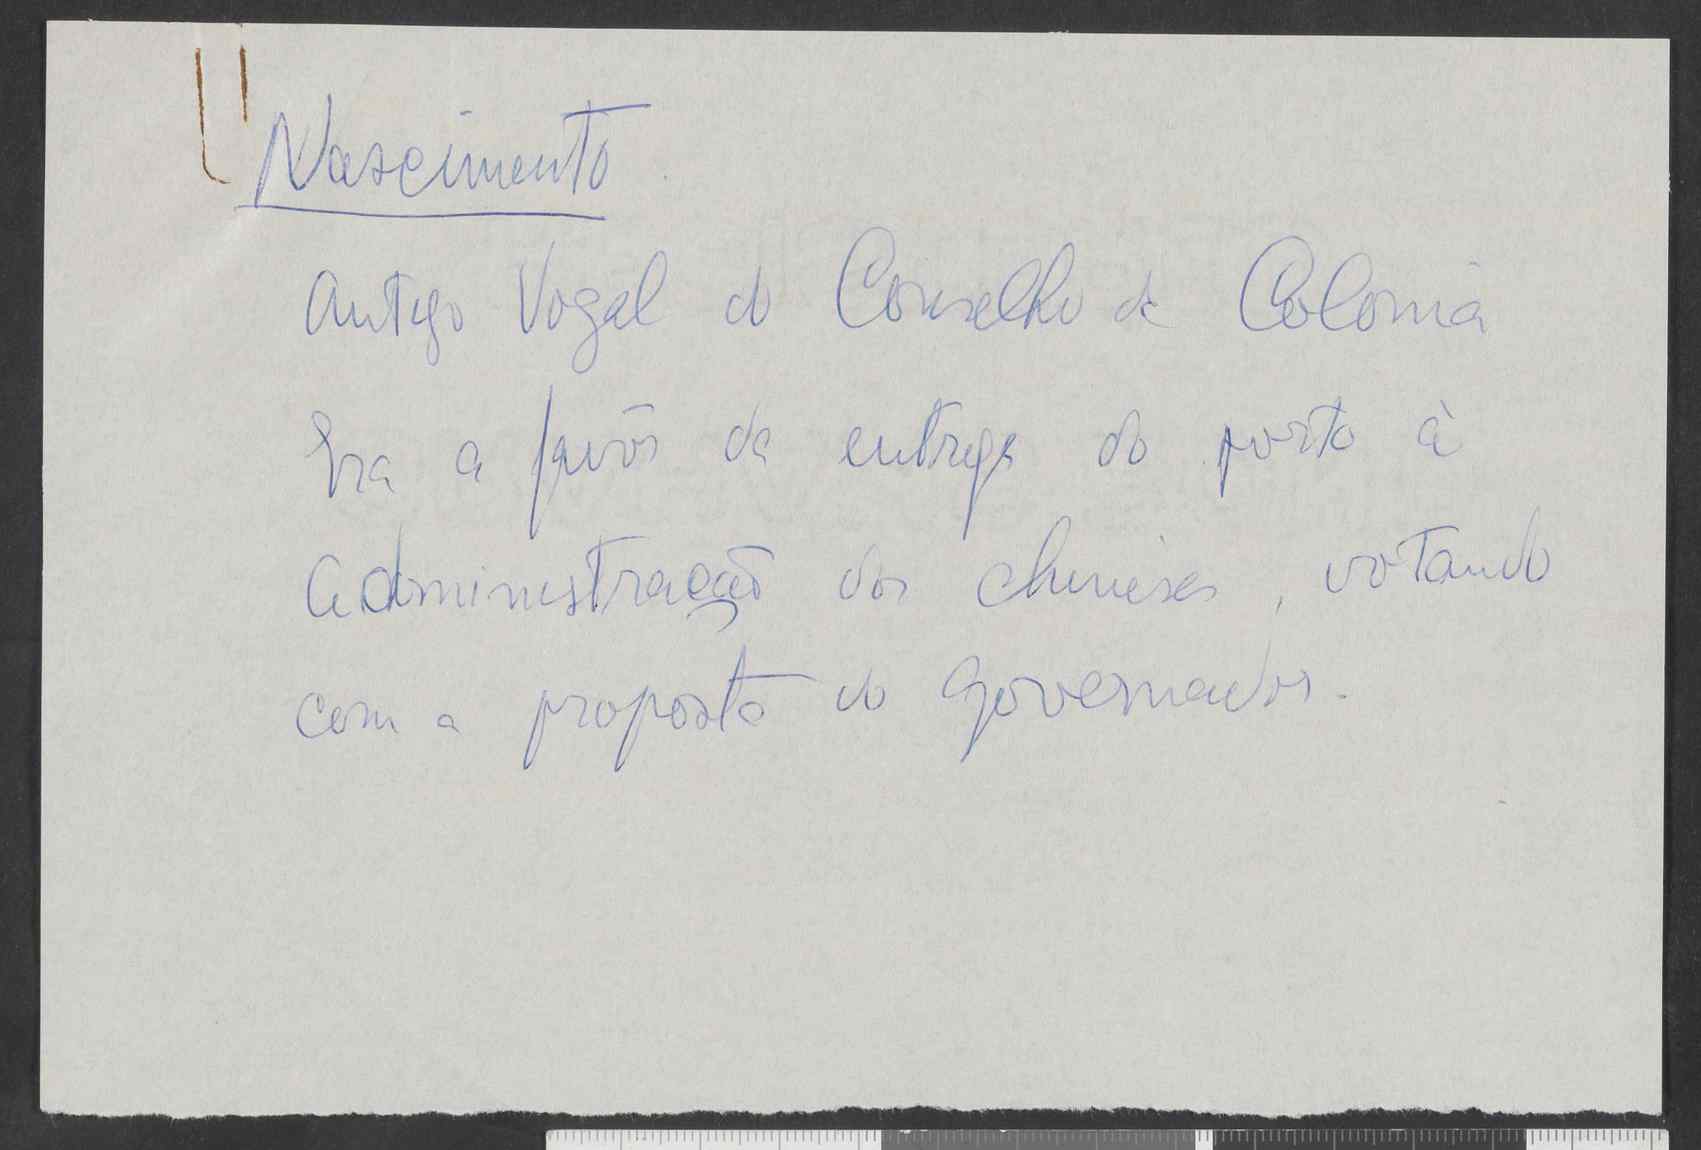 Nascimento
Antigo Vogal do Conselho da Colonia
Era a favôr da entrega do porto à
Administração dos chineses, votando
com a proposta do Governador.